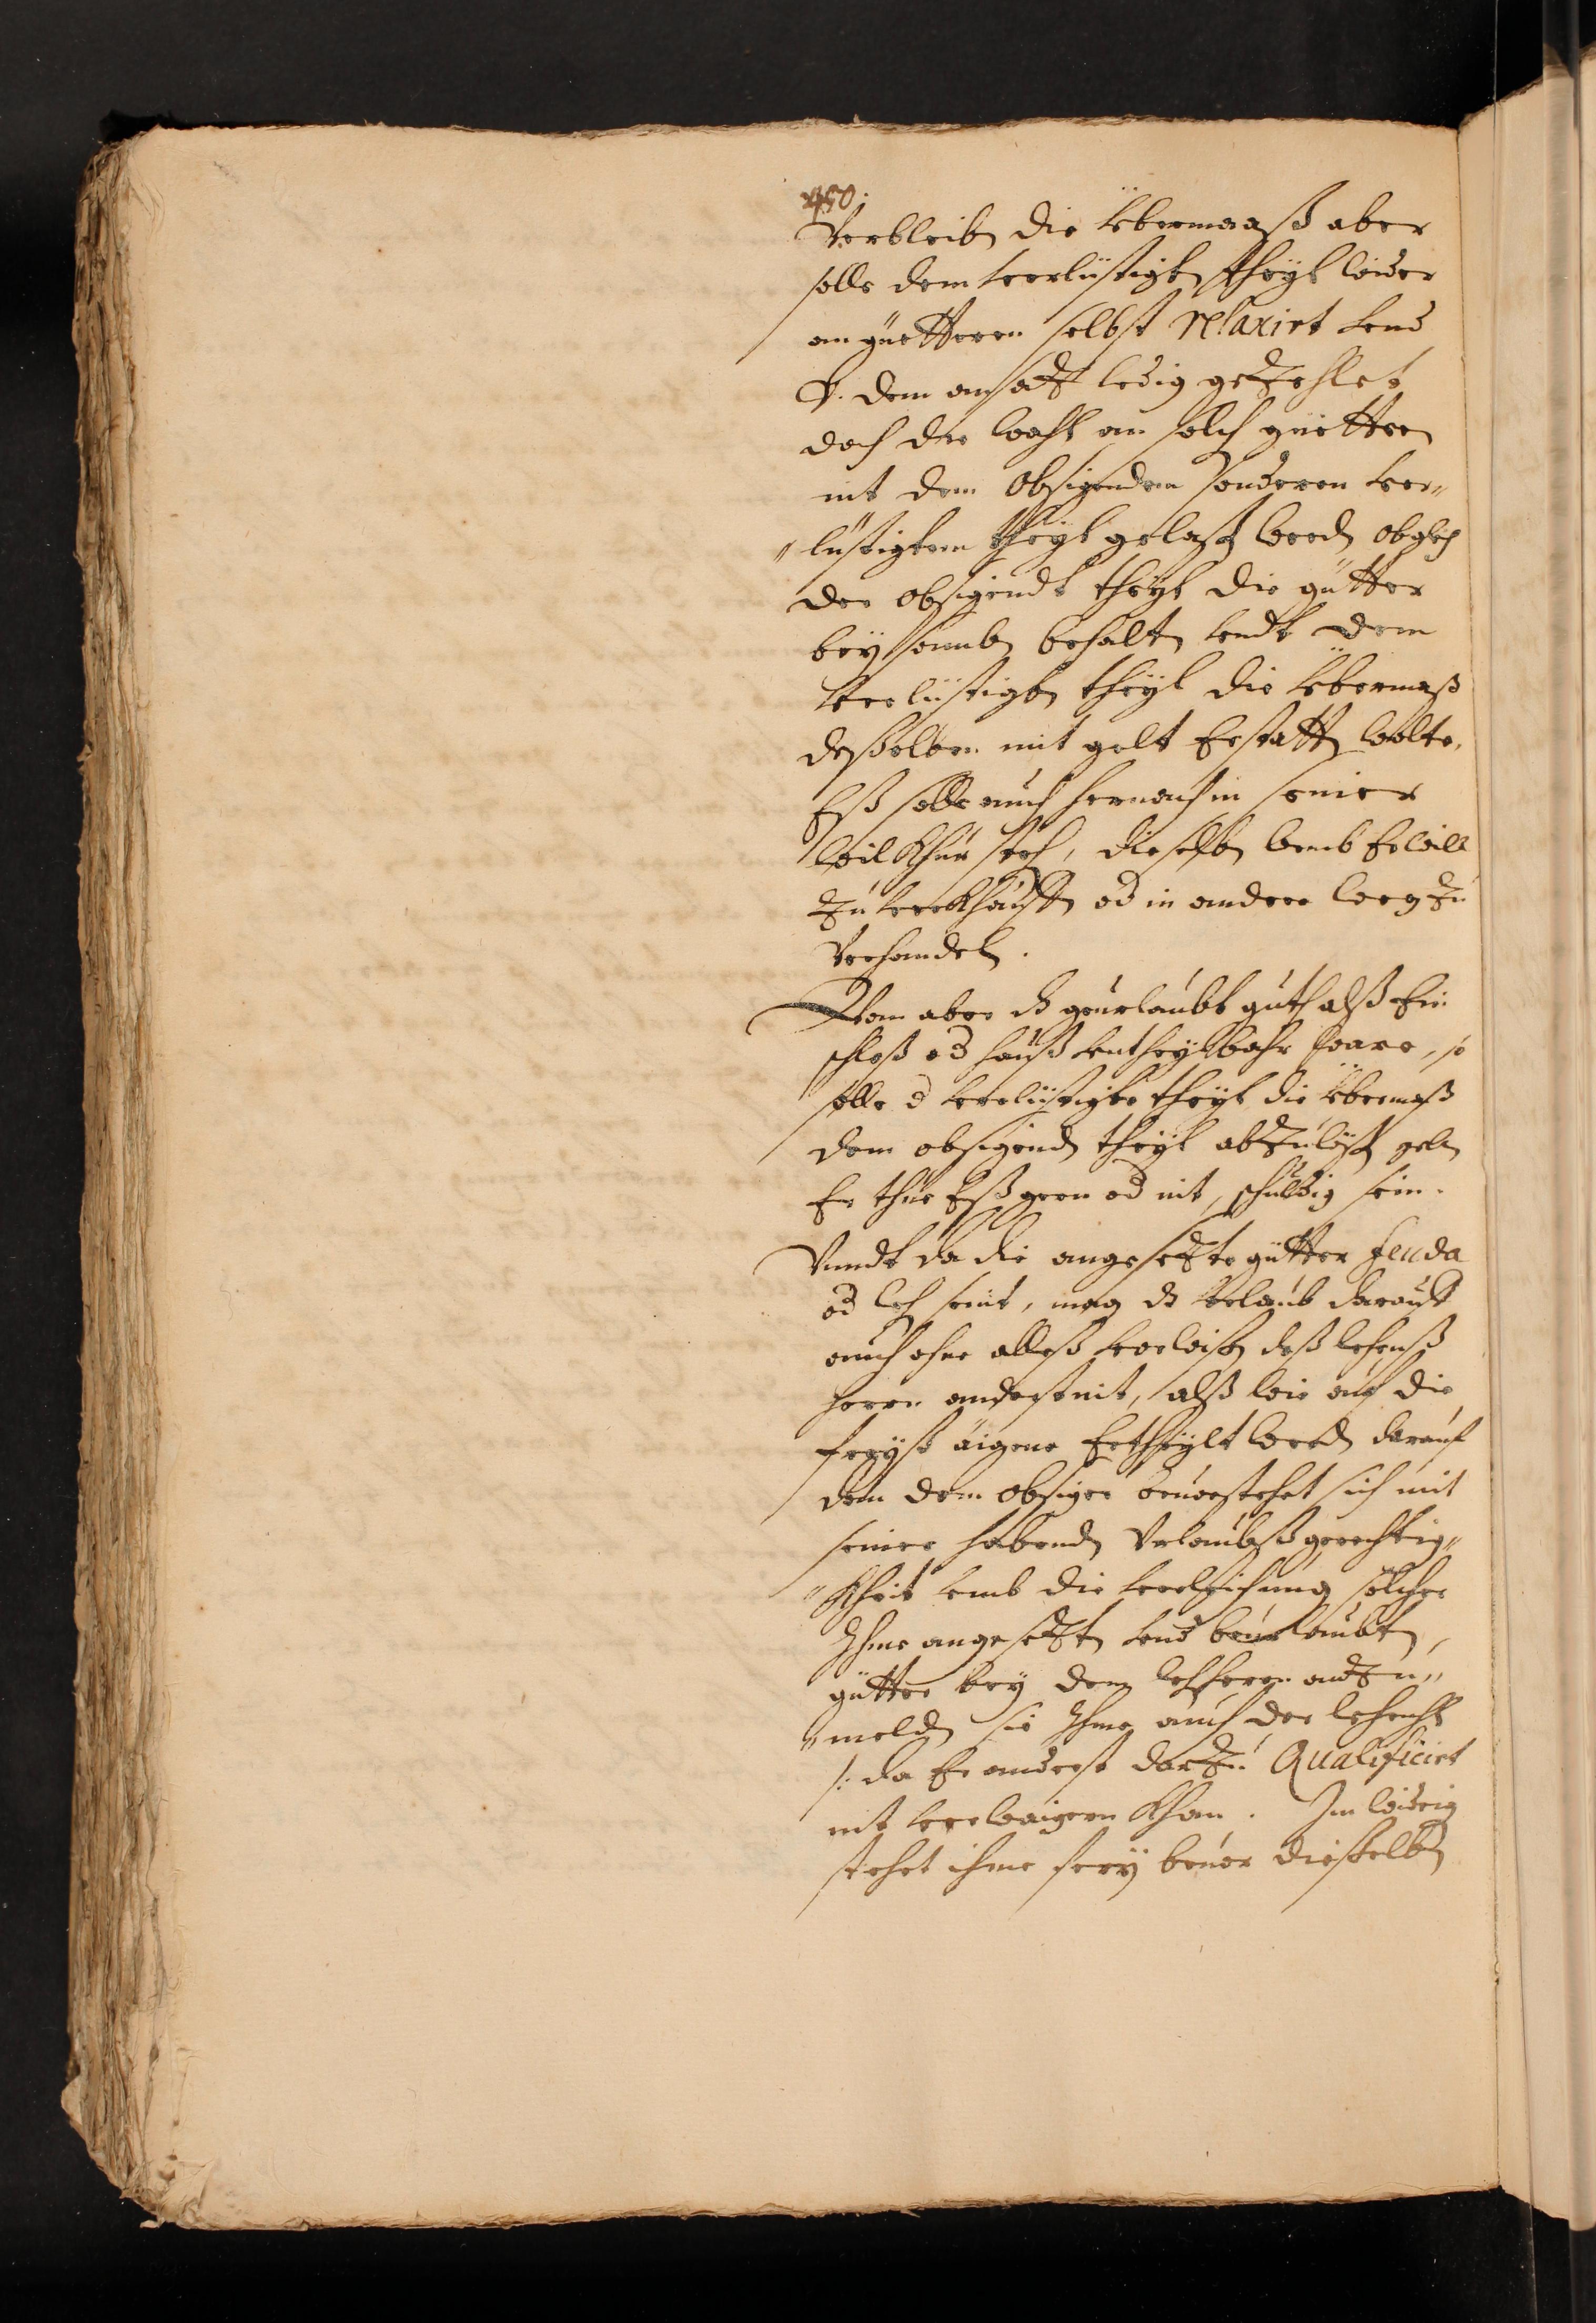 450.
Verbleiben die übermaaß aber
solle dem verlüstigten theyl wider
an güetteren selbst relaxirt vnd
v. dem ansatz ledig gezehlet
doch der wahl an solch güettern
nit dem Obsigendem sonderen ver„
„lustigtem theyl gelassen werden obgleich
der obsigendt theyl die gütter
bey sammben behalten vndt dem
verlüstigten theyl die übermaß
desselben mit gelt erstatten wolte.
Eß solle auch hernach in seiner
wilkhur stehen, dieselben vmb er will
zu verkhauffen od in andere weeg zu
verhandeln.
Wan aber ds geurlaubt guth alß ein
schloß od hauß vntheylbahr ware, so
solle d verlüstigte theyl die übermaß
dem obsigenden theyl abzulößen geben
Er thue eß gern od nit, schuldig sein.
Vnndt da die angesetzte gütter feuda
od lehen seint, mag ds vrlaub darauff
auch ohne alleß verwissen deß lehenß
herrn anderst nit, alß wie auf die
freyß äigene ertheylt werden darauf
dan dem obsiger beuorstehet sich mit
seiner habenden Vrlaubß gerechtig„
„kheit vmb die verleichung solcher
Ihme angesetzten vnd beurlaubten,
gütter bey dem lehherrn anzu„
„melden sie Ihme auch der lehenherr
/: da Er anderst darzu Qualificirt
nit verwaigern khan. Im widrig
stehet ihme frey beuor dieselben